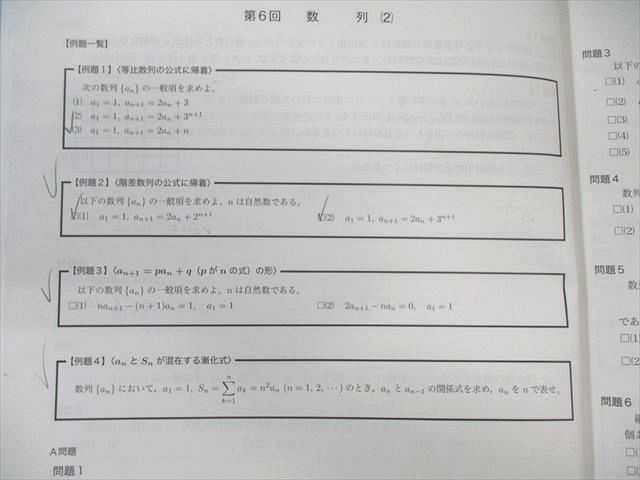 第6回 数 列 (2)
【例題一覧】
【例題1】〈等比数列の公式に帰着〉
次の数列 {aₙ} の一般項を求めよ。
(1) a₁ = 1, aₙ₊₁ = 2aₙ + 3
(2) a₁ = 1, aₙ₊₁ = 2aₙ + 3ⁿ⁺¹
(3) a₁ = 1, aₙ₊₁ = 2aₙ + n
【例題2】〈階差数列の公式に帰着〉
以下の数列 {aₙ} の一般項を求めよ。n は自然数である。
□(1) a₁ = 1, aₙ₊₁ = 2aₙ + 2ⁿ⁺¹ □(2) a₁ = 1, aₙ₊₁ = 2aₙ + 3ⁿ⁺¹
【例題3】〈aₙ₊₁ = paₙ + q (p が n の式) の形〉
以下の数列 {aₙ} の一般項を求めよ。n は自然数である。
□(1) naₙ₊₁ − (n + 1)aₙ = 1, a₁ = 1 □(2) 2aₙ₊₁ − naₙ = 0, a₁ = 1
【例題4】〈aₙ と Sₙ が混在する漸化式〉
数列 {aₙ} において, a₁ = 1, Sₙ = ∑ₖ₌₁ⁿ aₖ = n²aₙ (n = 1, 2, ⋯) のとき, aₙ と aₙ₋₁ の関係式を求め, aₙ を n で表せ。
A問題
問題1
問題3
以下の
□(1)
□(2)
□(3)
□(4)
□(5)
問題4
数列
□(1)
□(2)
問題5
数
であ
□(1)
□(2
問題6
個お
□(